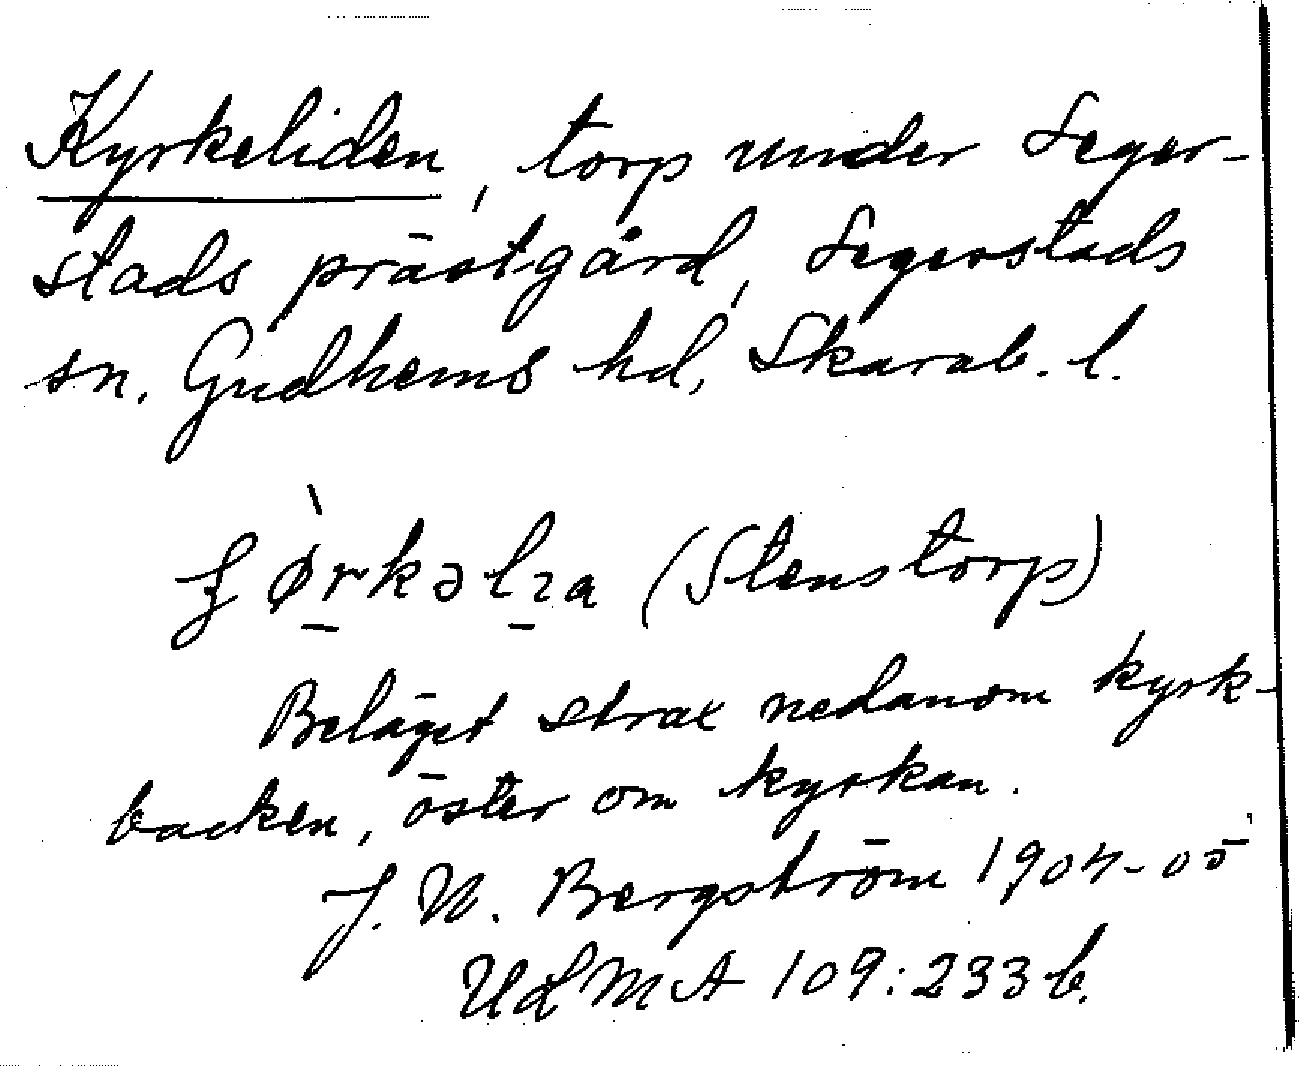 Kyrkeliden, torp under Seger-
stads prästgård, Segerstads
sn. Gudhems hd, Skarab. l.
(Stenstorp)
Beläget strax nedanom kyrk-
backen, öster om kyrkan.
J. N. Bergström 1904-05
ULMA 109:233 b.